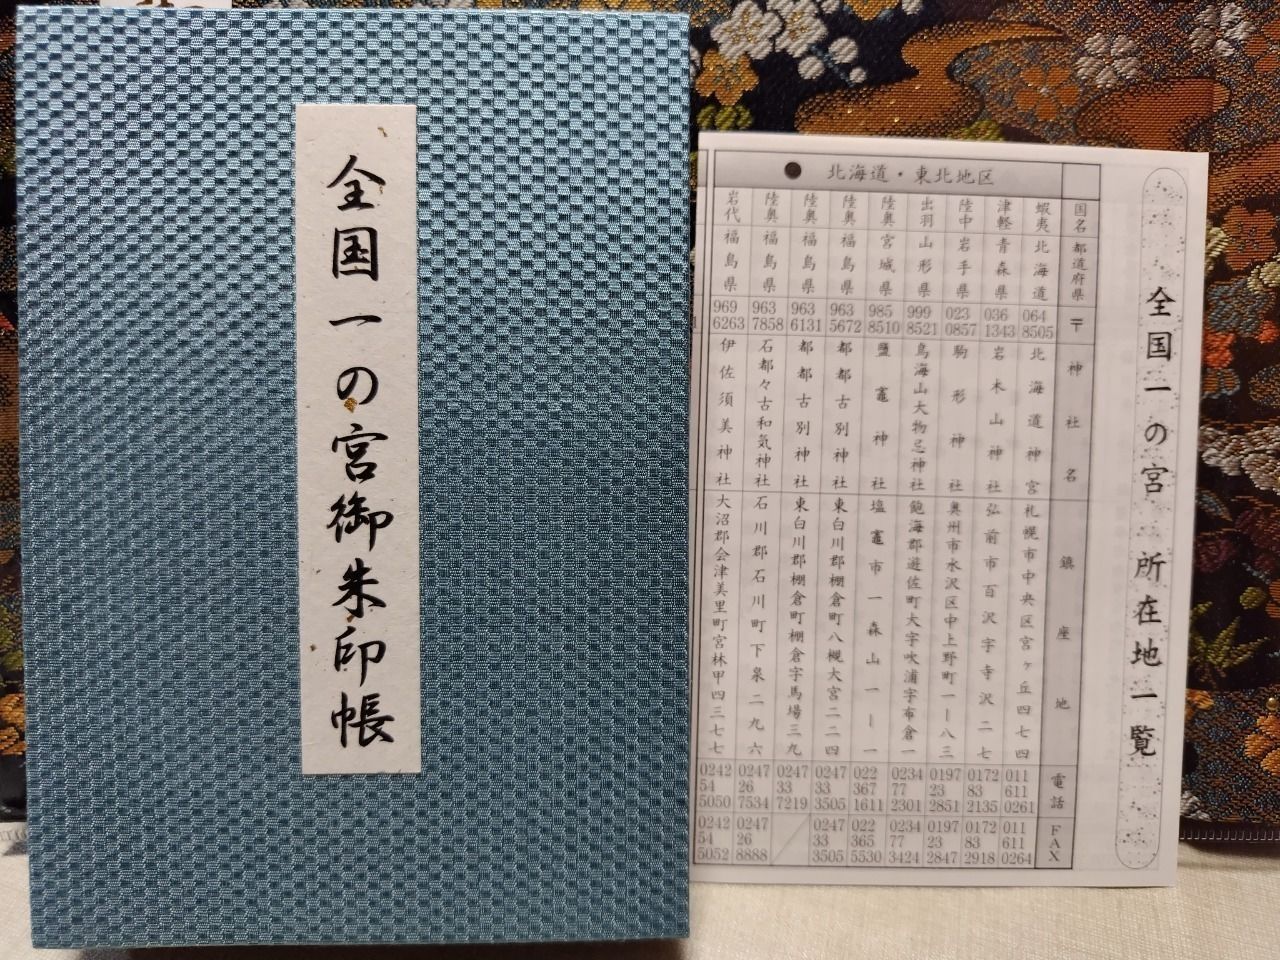 全国一の宮御朱印帳
全国一の宮 所在地一覧
北海道・東北地区
国名 都道府県 〒 神社名 鎮座地 電話 FAX
蝦夷 北海道 064 8505 北海道神宮 札幌市中央区宮ヶ丘四七四 011 611 0261 011 611 0264
津軽 青森県 036 1343 岩木山神社 弘前市百沢字寺沢二七 0172 83 2135 0172 83 2918
陸中 岩手県 023 0857 駒形神社 奥州市水沢区中上野町一ー八三 0197 23 2851 0197 23 2847
出羽 山形県 999 8521 鳥海山大物忌神社 飽海郡遊佐町大字吹浦字布倉一 0234 77 2301 0234 77 3424
陸奥 宮城県 985 8510 鹽竈神社 塩竈市一森山一ー一 022 367 1611 022 365 5530
陸奥 福島県 963 5672 都都古別神社 東白川郡棚倉町八槻大宮二二四 0247 33 3505 0247 33 3505
陸奥 福島県 963 6131 都都古別神社 東白川郡棚倉町棚倉字馬場三九 0247 33 7219
陸奥 福島県 963 7858 石都々古和気神社 石川郡石川町下泉二九六 0247 26 7534 0247 26 8888
岩代 福島県 969 6263 伊佐須美神社 大沼郡会津美里町宮林甲四三七七 0242 54 5050 0242 54 5052